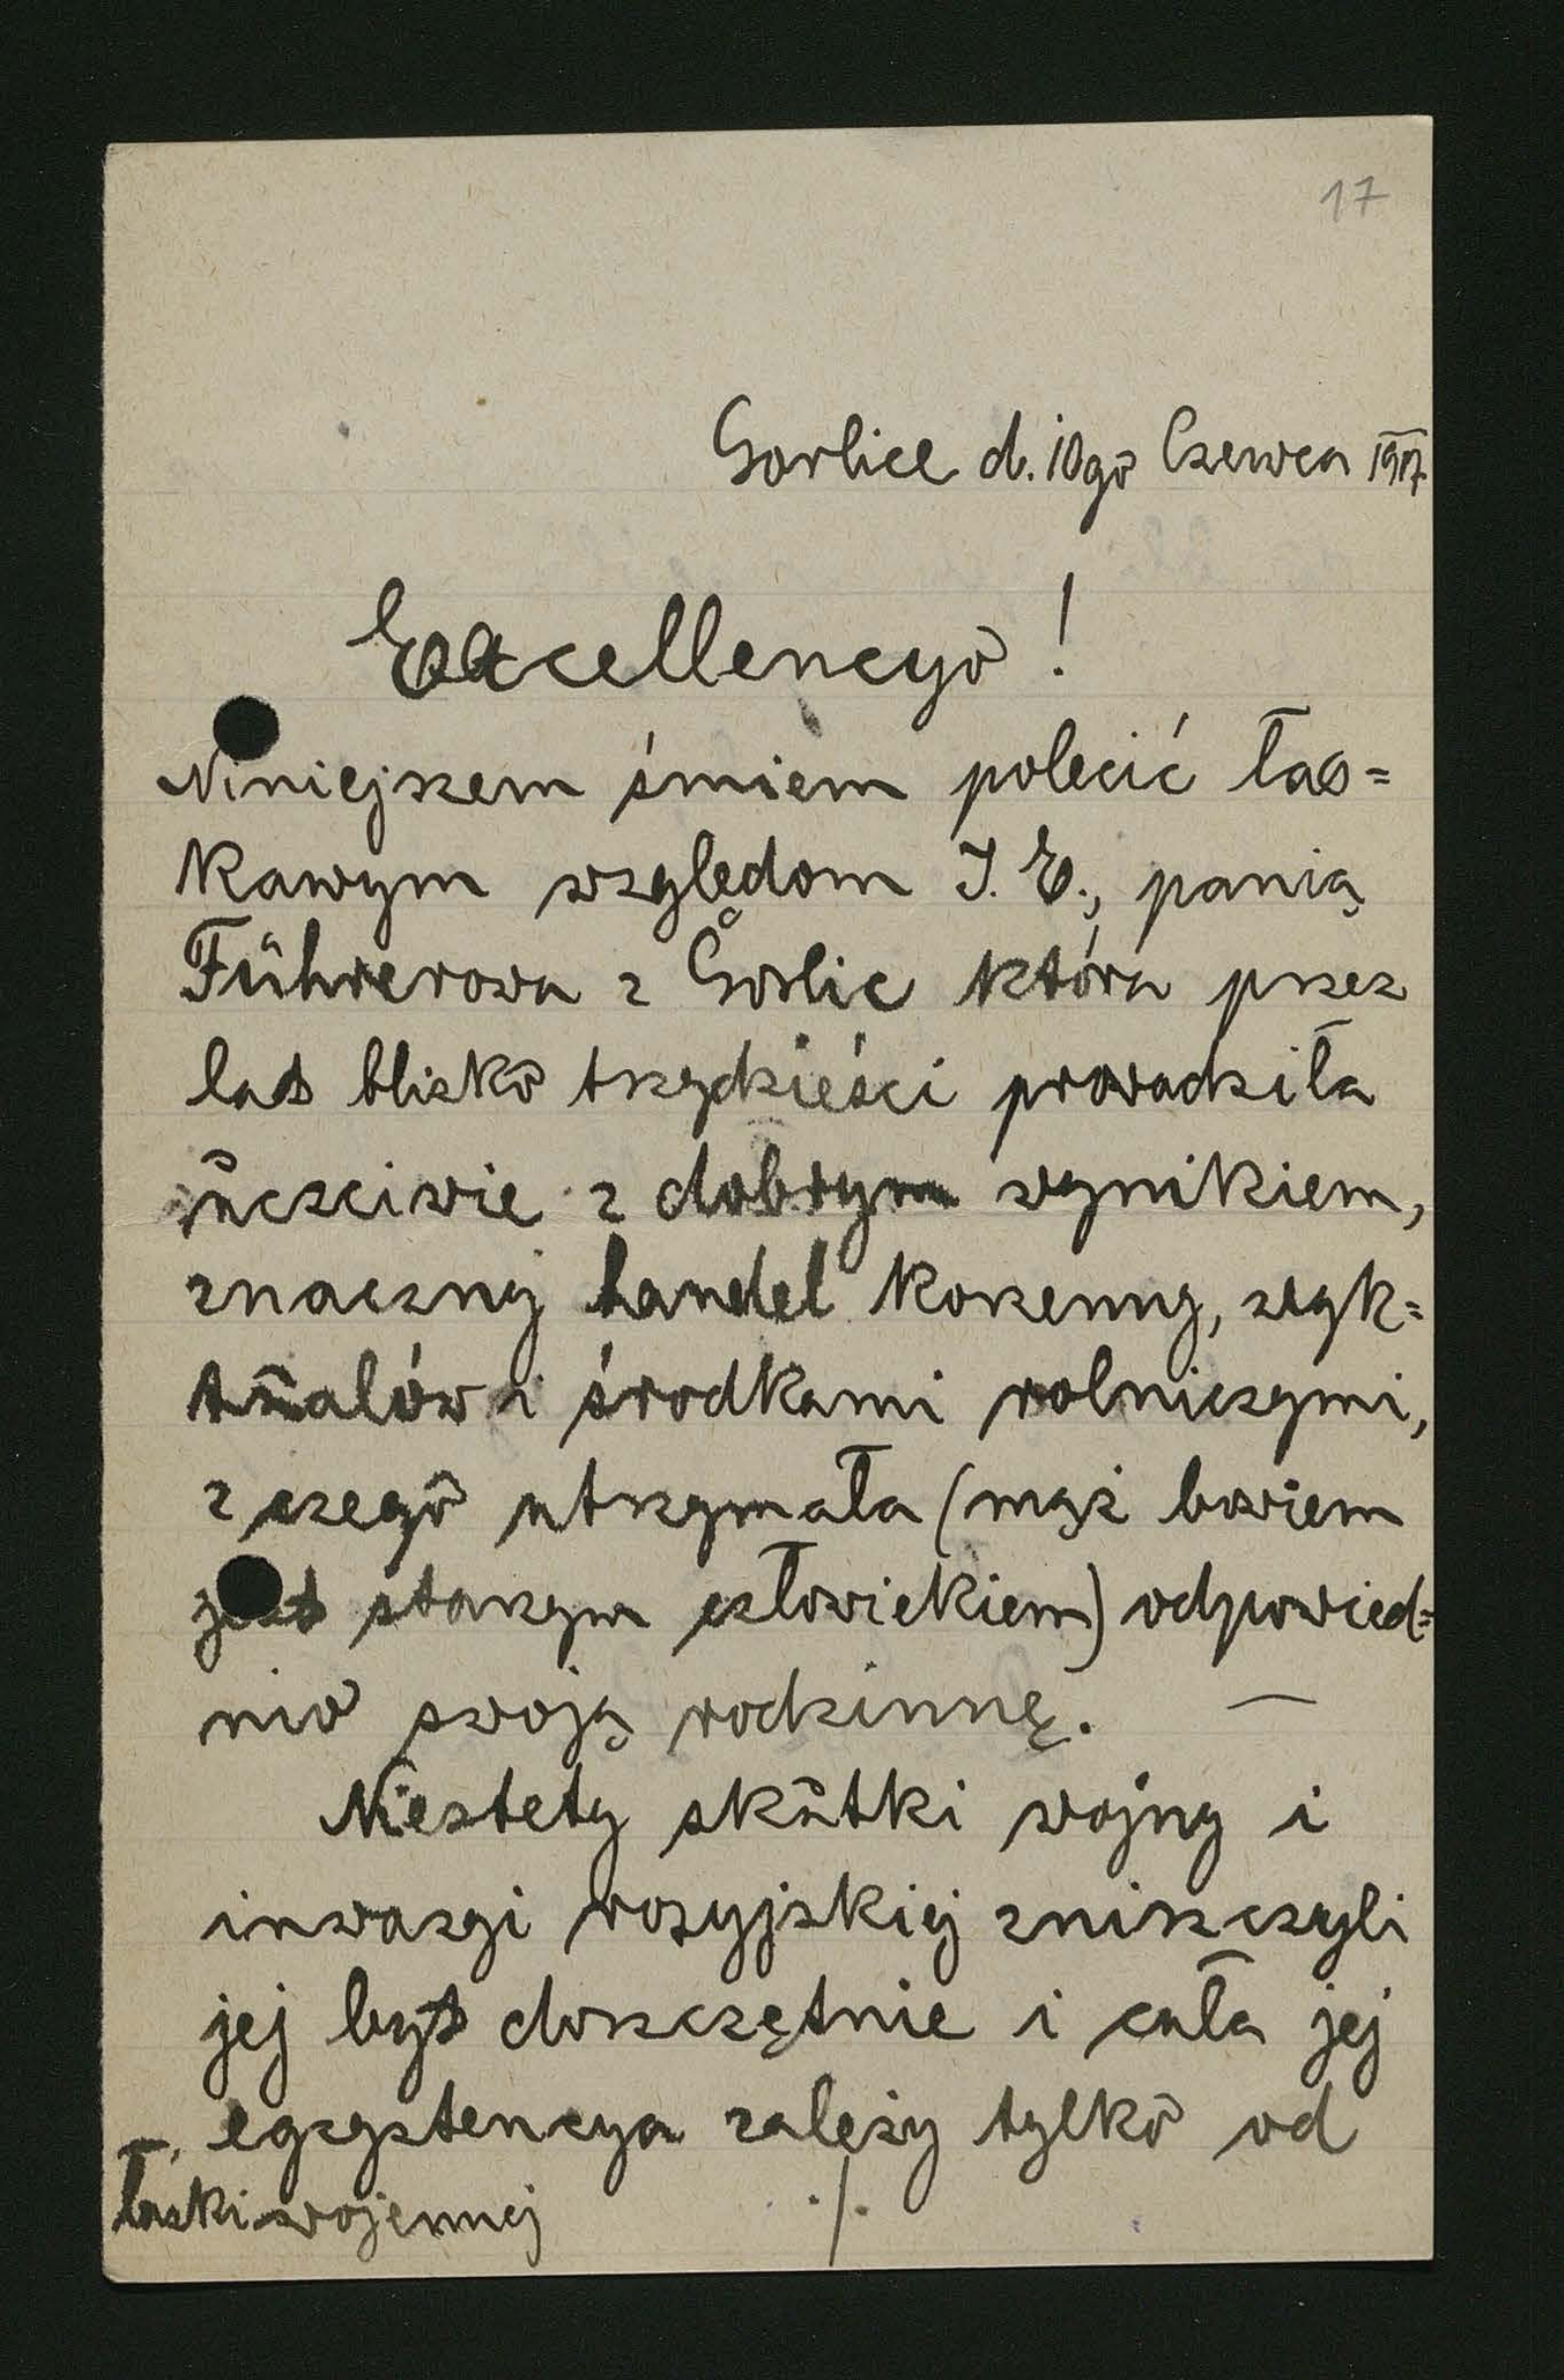 17
Gorlice d. 10go Czerwca 1917.
Excellencyo!
Niniejszem śmiem polecić łas=
kawym względom J. E., panią
Führerowa z Gorlic która przez
lat blisko trzydzieści prowadziła
uczciwie z dobrym wynikiem,
znaczny handel korzenny, wyk=
tuałów i środkami rolniczymi,
z czego utrzymała (mąż bowiem
jest starym człowiekiem) odpowied=
nio swoją rodzinnę. —
Niestety skutki wojny i
inwazyi rosyjskiej zniszczyli
jej byt doszczętnie i cała jej
egzystencya zależy tylko od
łaski wojennej ./.